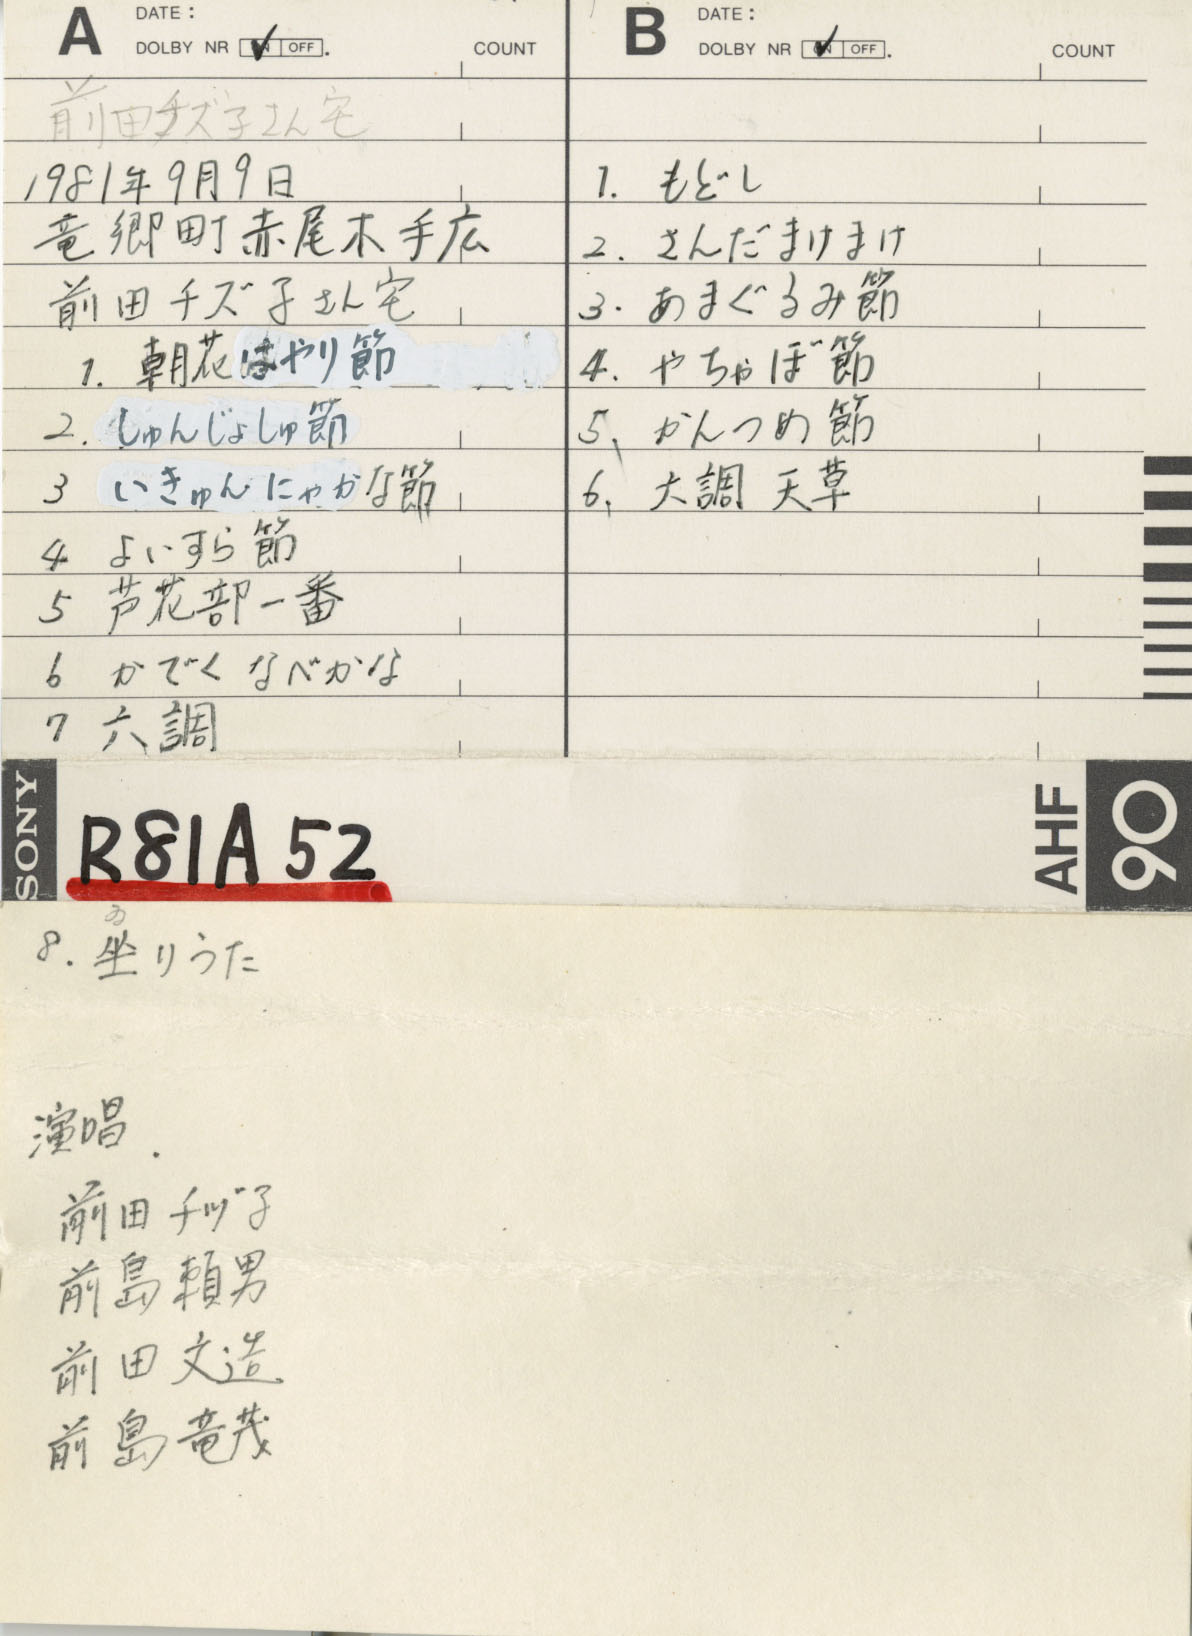 A DATE:
DOLBY NR ON OFF. COUNT
前田チズ子さん宅
1981年9月9日
竜郷町赤尾木手広
前田チズ子さん宅
1. 朝花はやり節
2. しゅんじょしゅ節
3 いきゅんにゃかな節
4 よいすら節
5 芦花部一番
6 かでくなべかな
7 六調
B DATE:
DOLBY NR ON OFF. COUNT
1. もどし
2. さんだまけまけ
3. あまぐるみ節
4. やちゃぼ節
5. かんつめ節
6. 六調 天草
SONY
R81A52
AHF
90
ゐ
8. 坐りうた
演唱.
前田チヅ子
前島頼男
前田文造
前島竜茂